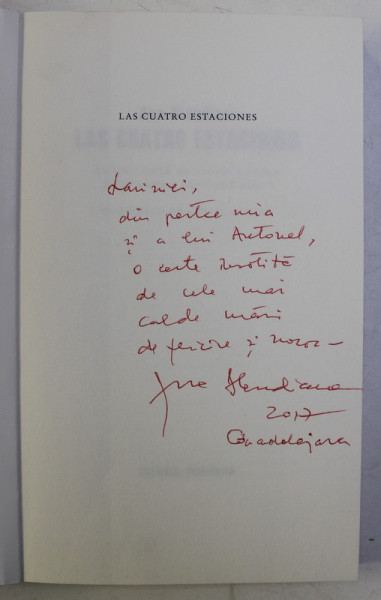 LAS CUATRO ESTACIONES
din partea mea
și a lui Antonel,
o carte însoțită
de cele mai
calde urări
de fericire și noroc –
Ana Blandiana
2017
Guadalajara